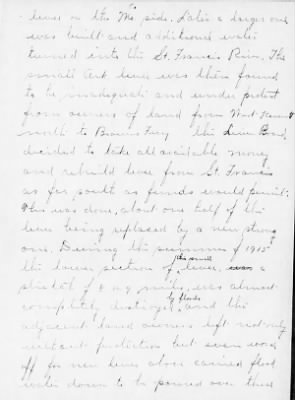 levee on the Mo. side. Later a larger one
was built and additional water
turned into the St. Francis River. The
small Ark levee was then found
to be inadequate and under protest
from owners of land from West
north to Browns Ferry the Levee Board
decided to take all available money
and rebuild levee from St. Francis
as far south as funds would permit.
this was done, about one half of the
levee being replaced by a new strong
one. During the summer of 1915
the lower section of the small levee, a
stretch of 8 or 9 miles, was almost
completely destroyed by floods and the
adjacent land owners left not only
without protection but even worse
off for new levee above carried flood
water down to be poured over these